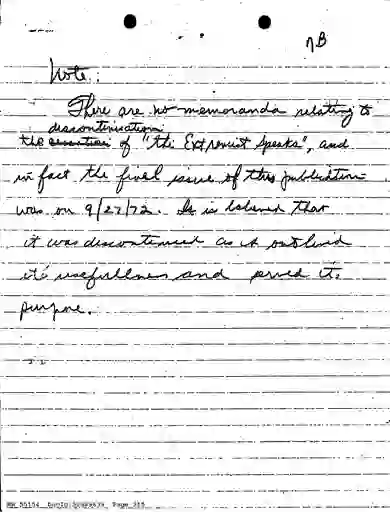 7B
Note:
There are no memoranda relating to
discontinuation
the of "the Extremist Speaks", and
in fact the final issue of this publication
was on 9/27/72. It is believed that
it was discontinued as it outlived
it's usefullness and served its
purpose.
Page 215